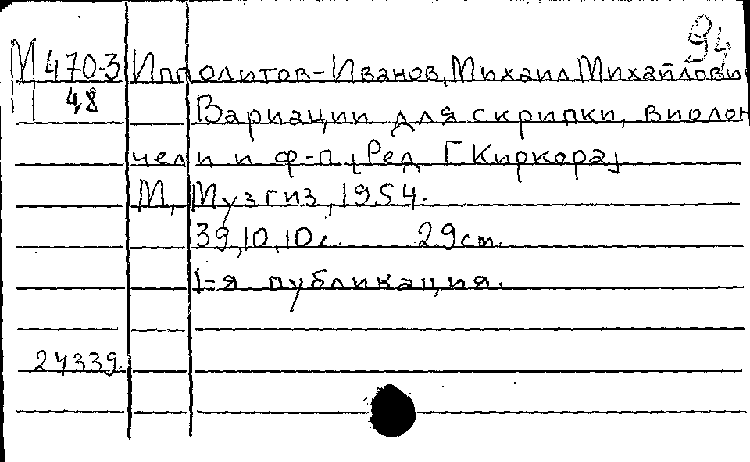 94
М 470-3 Ипполитов-Иванов, Михаил Михайлови
48 Вариации для скрипки, виолон
чели и ф-п, [Ред. Г. Киркора]
М., Музгиз, 1954.
39, 10, 10 с. 29 см.
1-я публикация.
24339.